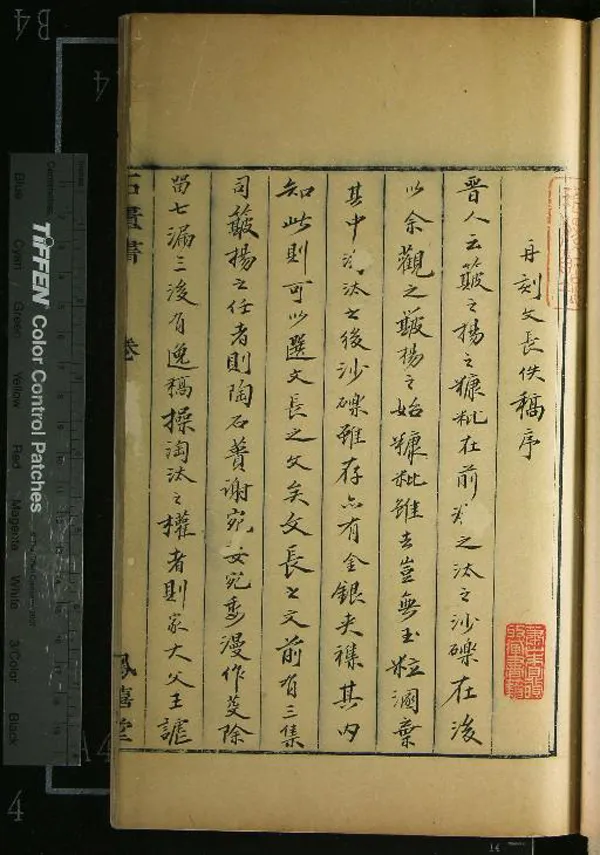 再刻文長佚稿序
晉人云簸之揚之糠粃在前淘之汰之沙礫在後
以余觀之簸揚之始糠粃雖去豈無玉粒溷棄
其中淘汰之後沙礫雖存亦有金銀夾襍其內
知此則可以選文長之文矣文長之文前有三集
司簸揚之任者則陶石蕢謝宛委宛委漫作芟除
留七漏三後有逸稿操淘汰之權者則家大父王謔
石匱書 卷 鳳嬉堂
TIFFEN Color Control Patches
Blue Cyan Green Yellow Red Magenta White 3/Color Black
B4
4